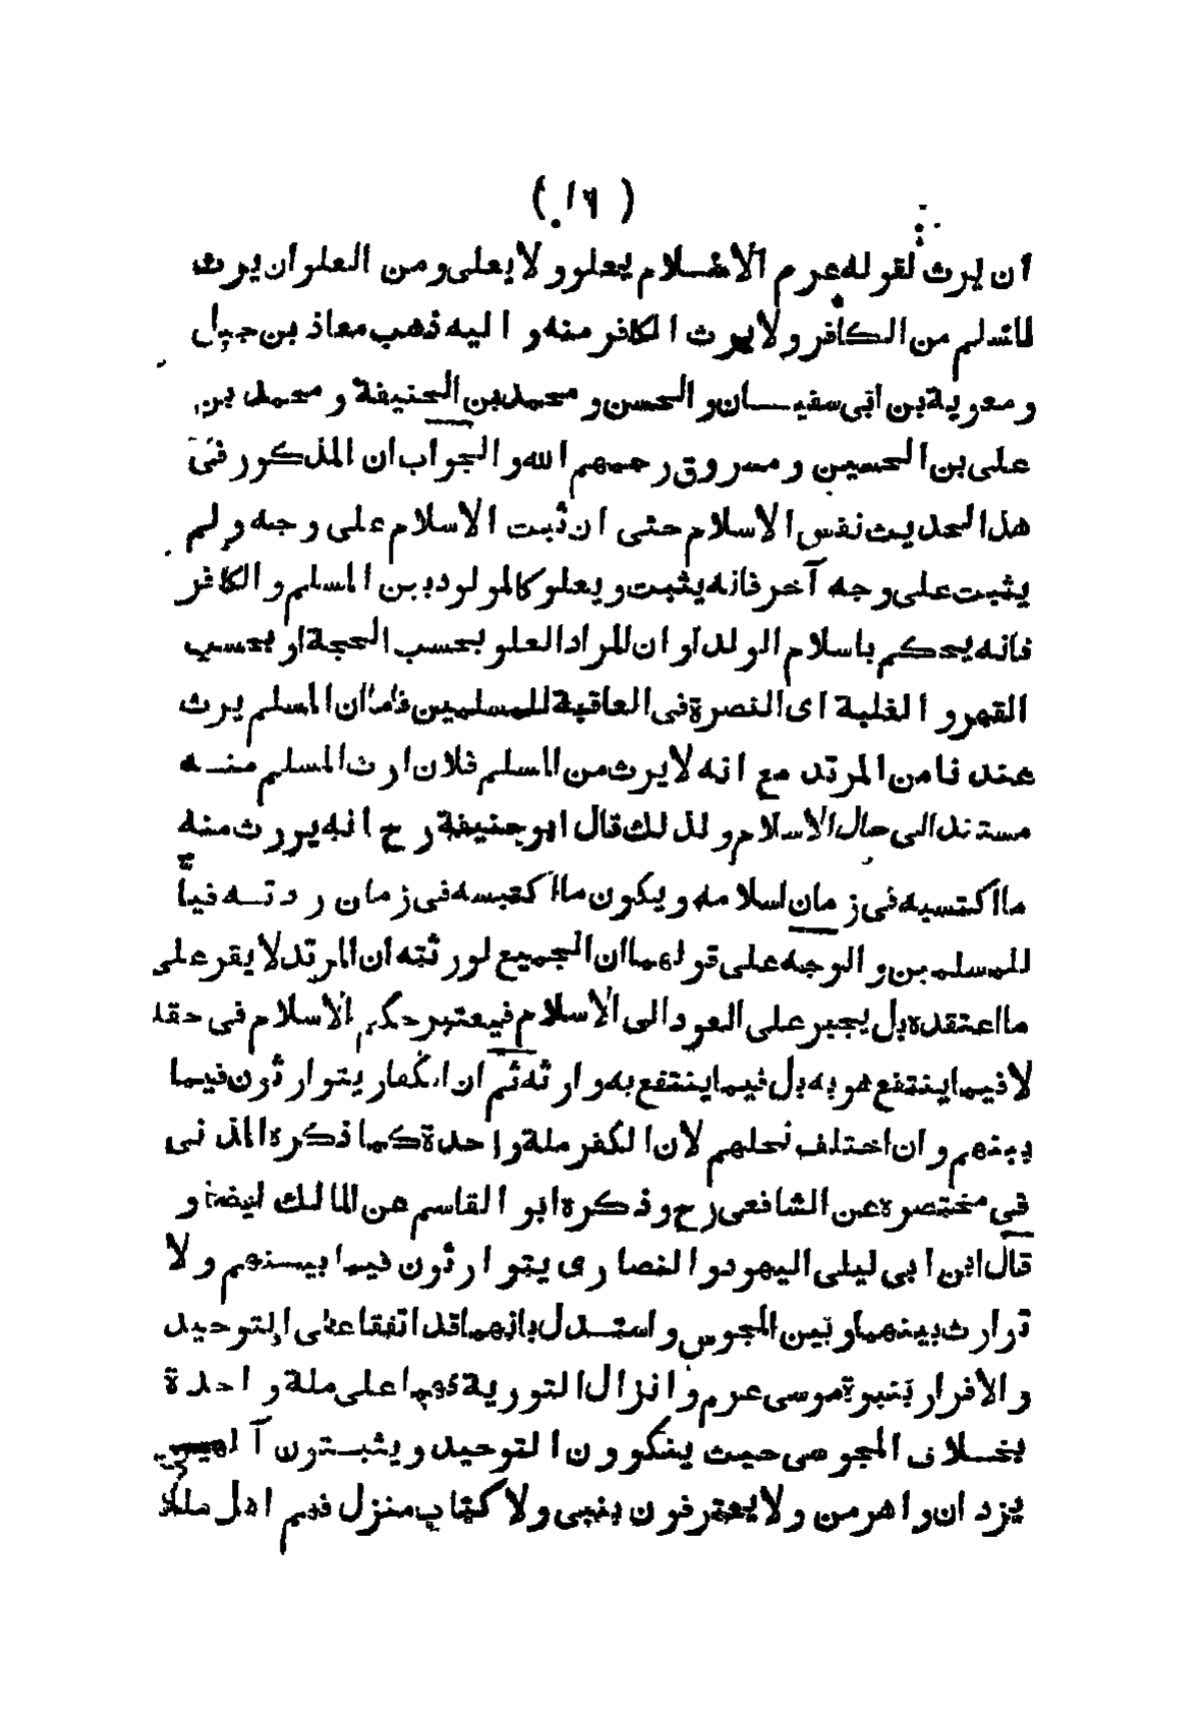 ( ١٦ )
ان يرث لقوله عرم الاسلام يعلو ولا يعلى ومن العلو ان يرث
المسلم من الكافر ولا يرث الكافر منه و اليه ذهب معاذ بن جبل
و معوية بن ابى سفيان و الحسن و محمد بن الحنيفة و محمد بن
على بن الحسين و مسروق رحمهم الله و الجواب ان المذكور فى
هذا الحديث نفس الاسلام حتى ان ثبت الاسلام على وجه و لم
يثبت على وجه آخر فانه يثبت و يعلو كالمولود بين المسلم و الكافر
فانه يحكم باسلام الولد او ان المراد العلو بحسب الحجة او بحسب
القهر و الغلبة اى النصرة فى العاقبة للمسلمين فاما ان المسلم يرث
عندنا من المرتد مع انه لا يرث من المسلم فلان ارث المسلم منه
مستند الى حال الاسلام و لذلك قال ابو حنيفة رح انه يورث منه
ما اكتسبه فى زمان اسلامه و يكون ما اكتسبه فى زمان ردته فيأ
للمسلمين و الوجه على قولهما ان الجميع لورثته ان المرتد لا يقر على
ما اعتقده بل يجبر على العود الى الاسلام فيعتبر حكم الاسلام فى حقه
لا فيما ينتفع هو به بل فيما ينتفع به وارثه ثم ان الكفار يتوارثون فيما
بينهم و ان اختلف نحلهم لان الكفر ملة واحدة كما ذكره المزنى
فى مختصره عن الشافعى رح و ذكره ابو القاسم عن المالك ايضا و
قال ابن ابى ليلى اليهود و النصارى يتوارثون فيما بينهم و لا
توارث بينهما و بين المجوس و استدل بانهما قد اتفقا على التوحيد
و الاقرار بنبوة موسى عرم و انزال التورية فهما على ملة واحدة
بخلاف المجوس حيث ينكرون التوحيد و يثبتون آلهين
يزدان و اهرمن و لا يعترفون بنبى و لا كتاب منزل فهم اهل ملة